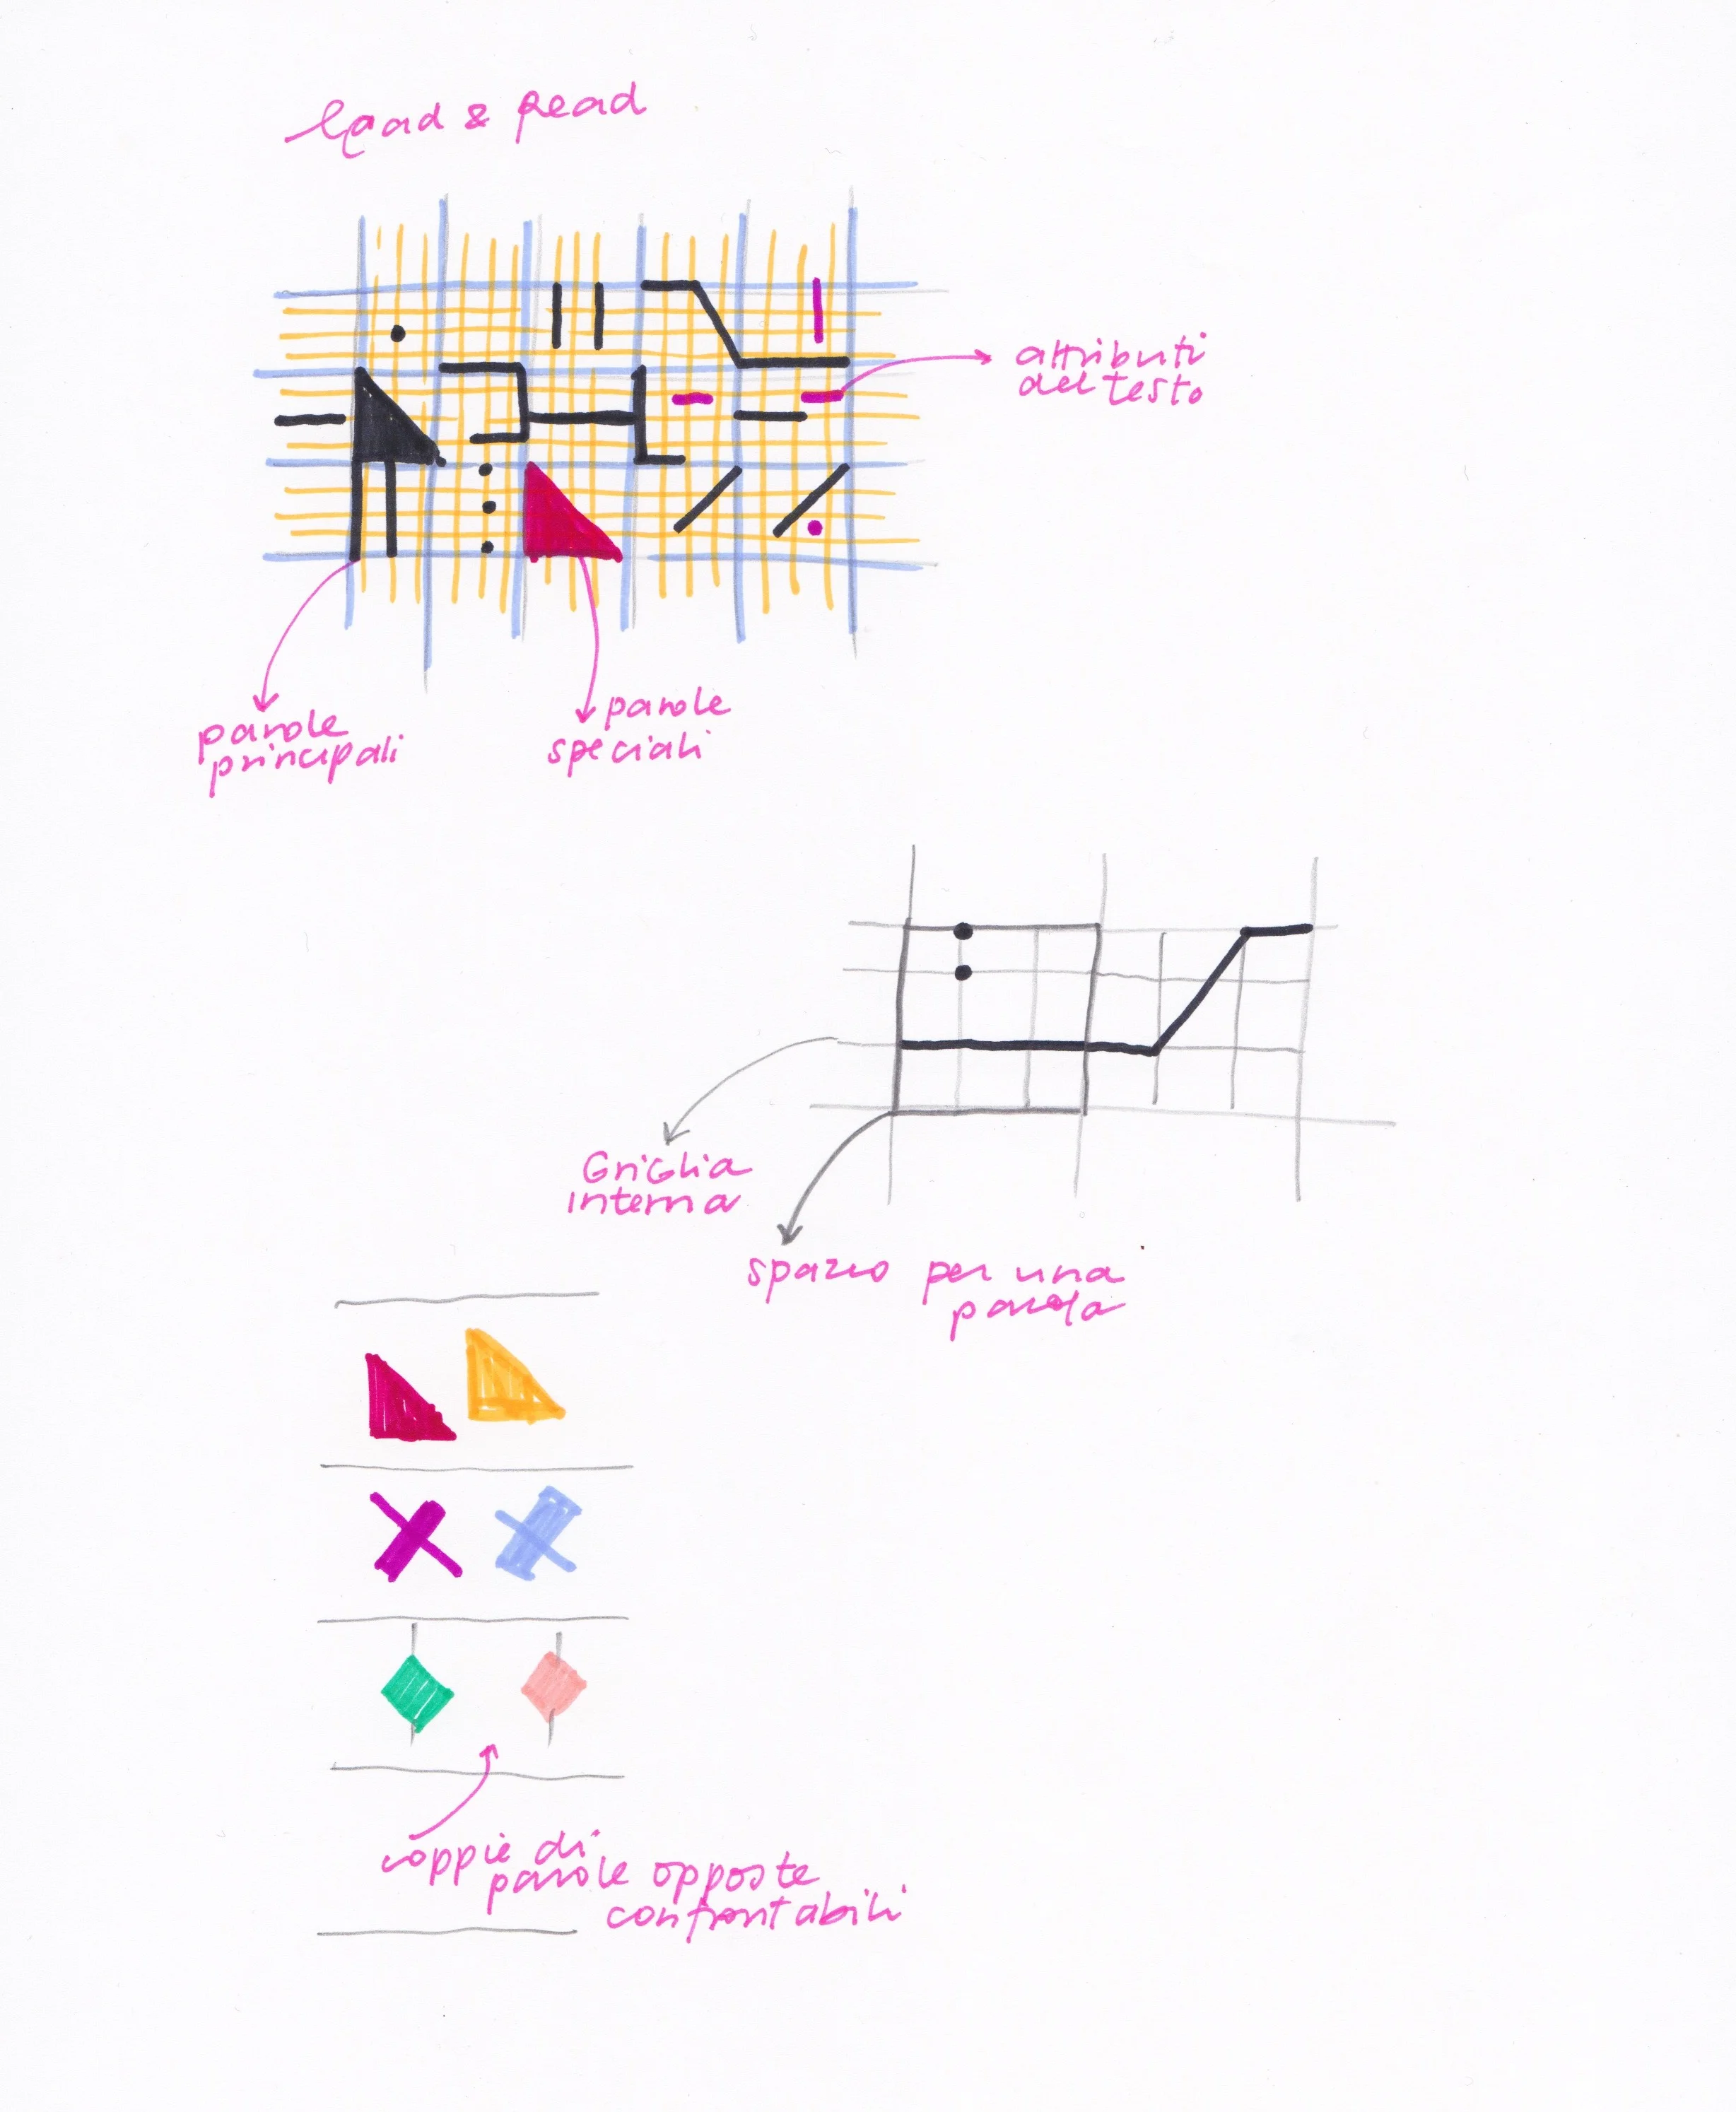 & Read
attributi
del testo
parole
principali
parole
speciali
Griglia
interna
spazio per una
parola
coppie di
parole opposte
confrontabili